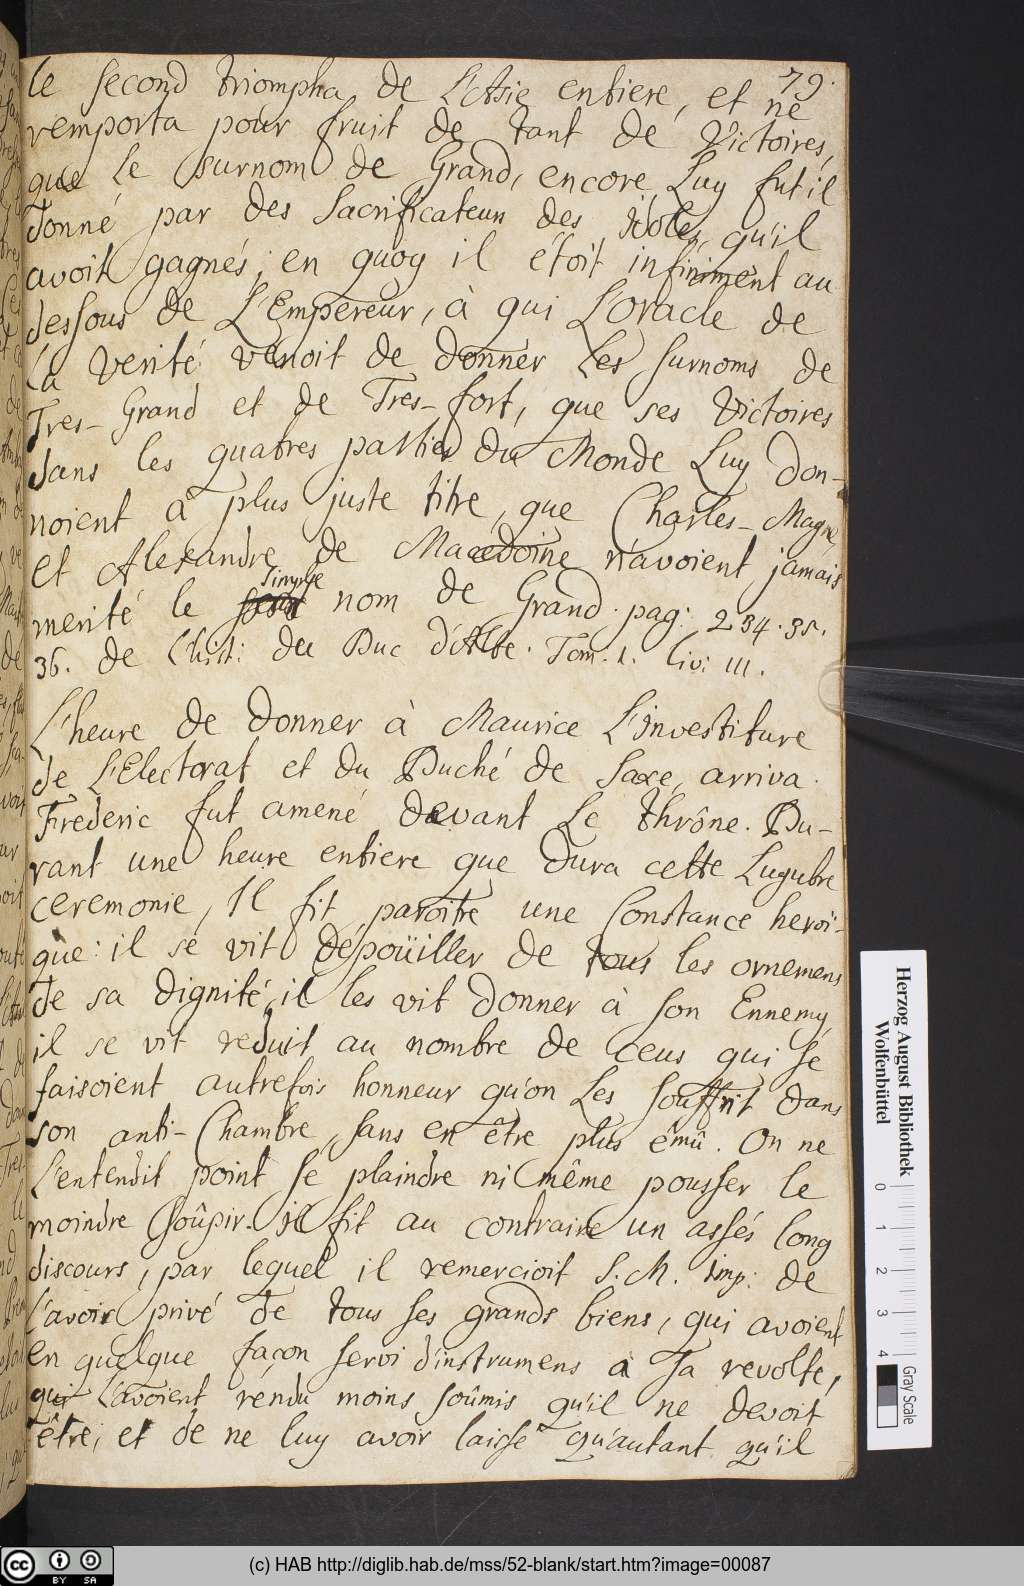 79.
le second triompha de L'Asie entiere, et ne
remporta pour fruit de tant de Victoires,
que le surnom de Grand, encore Luy fut il
donné par des Sacrificateurs des Idoles, qu'il
avoit gagnés; en quoy il étoit infiniment au
dessous de L'Empereur, à qui L'Oracle de
La Verité venoit de donner Les surnoms de
Tres-Grand et de Tres-fort, que ses Victoires
dans les quatres parties du Monde Luy don-
noient à plus juste titre, que Charles-Magne,
et Alexandre de Macedoine n'avoient jamais
simple
merité le nom de Grand. pag: 234. 35.
36. de L'hist: du Duc d'Albe. Tom. 1. Liv: III.
L'heure de donner à Maurice L'investiture
de L'Electorat et du Duché de Saxe, arriva.
Frederic fut amené devant Le thrône. Du-
rant une heure entiere que dura cette Lugubre
ceremonie, Il fit paroitre une Constance heroï-
que: il se vit dépoüiller de tous les ornemens
de sa dignité, il les vit donner à son Ennemy,
il se vit reduit au nombre de ceus qui se
faisoient autrefois honneur qu'on Les souffrit dans
son anti-Chambre, sans en être plus émû. On ne
L'entendit point se plaindre ni même pousser le
moindre soûpir. il fit au contraire un assés long
discours, par lequel il remercioit S. M. Imp: de
L'avoir privé de tous ses grands biens, qui avoient
en quelque façon servi d'instrumens à sa revolte,
qui L'avoient rendu moins soûmis qu'il ne devoit
être, et de ne luy avoir laisse qu'autant qu'il
Herzog August Bibliothek
Wolfenbüttel
0 1 2 3 4
Gray Scale
(c) HAB http://diglib.hab.de/mss/52-blank/start.htm?image=00087
cc BY SA